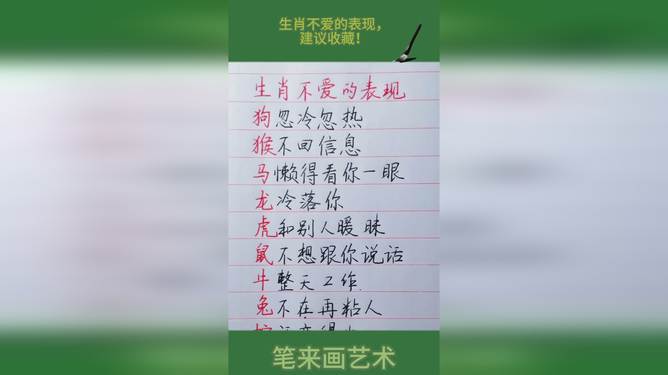 生肖不爱的表现,
建议收藏!
生肖不爱的表现
狗忽冷忽热
猴不回信息
马懒得看你一眼
龙冷落你
虎和别人暖昧
鼠不想跟你说话
牛整天工作
兔不在再粘人
笔来画艺术